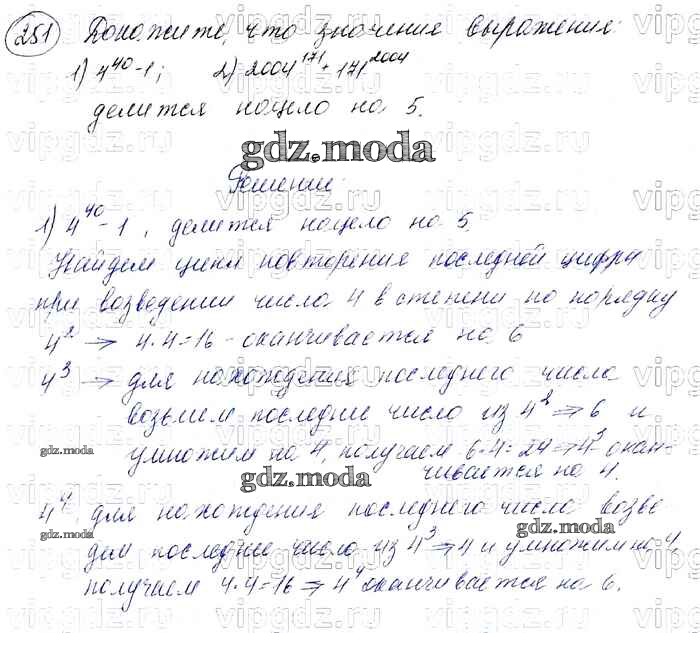 251 Докажите, что значения выражения:
1) 4^40 - 1; 2) 2004^171 + 171^2004
делится нацело на 5.
gdz.moda
Решение
1) 4^40 - 1, делится нацело на 5
Найдем цикл повторения последней цифры
при возведении числа 4 в степени по порядку
4^2 → 4·4=16 - оканчивается на 6
4^3 → для нахождения последнего числа
возьмем последние число из 4^2 ⇒ 6 и
gdz.moda умножим на 4, получаем 6·4=24 ⇒ 4^3 окан-
gdz.moda чивается на 4.
4^4, для нахождения последнего число возве
gdz.moda gdz.moda
дем последние число из 4^3 ⇒ 4 и умножим на 4
получаем 4·4=16 ⇒ 4^4 оканчивается на 6.
vipgdz.ru